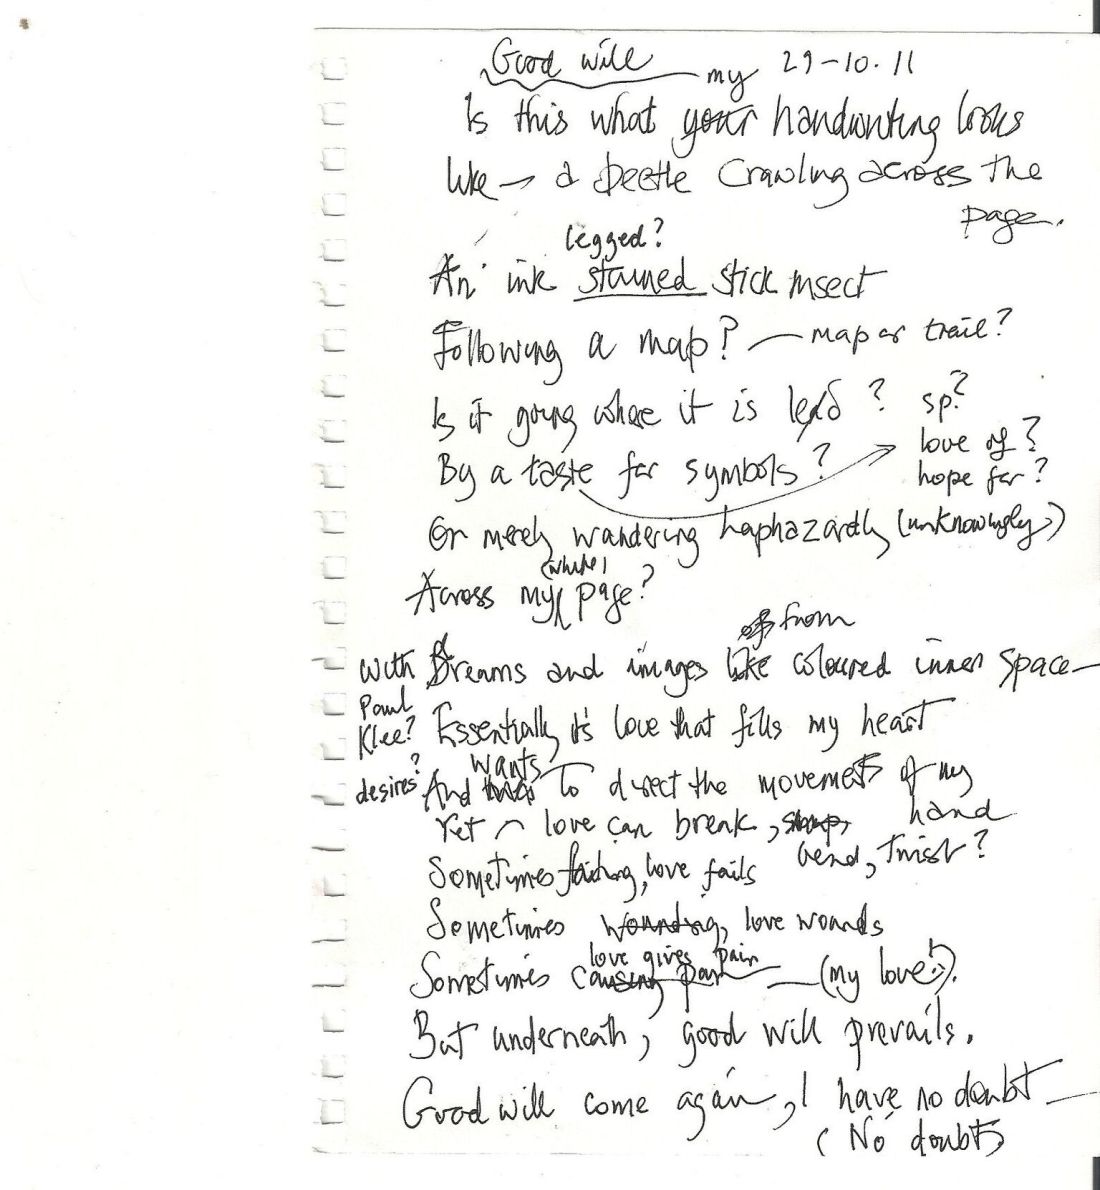 Good will 29-10.11
my
Is this what your handwriting looks
like → a beetle crawling across the
page.
legged?
An ink stained stick insect
Following a map? — map or trail?
Is it going where it is lead? sp?
love of?
By a taste for symbols?
hope for?
Or merely wandering haphazardly (unknowingly)
(white)
Across my page?
of from
With Dreams and images like coloured inner space—
Paul
Klee? Essentially it's love that fills my heart
wants
desires? And to direct the movements of my
hand
Yet love can break,
bend, twist?
Sometimes failing, love fails
Sometimes wounding, love wounds
love gives pain
Sometimes causing pain — (my love?).
But underneath, good will prevails.
Good will come again, I have no doubt—
(No doubt)